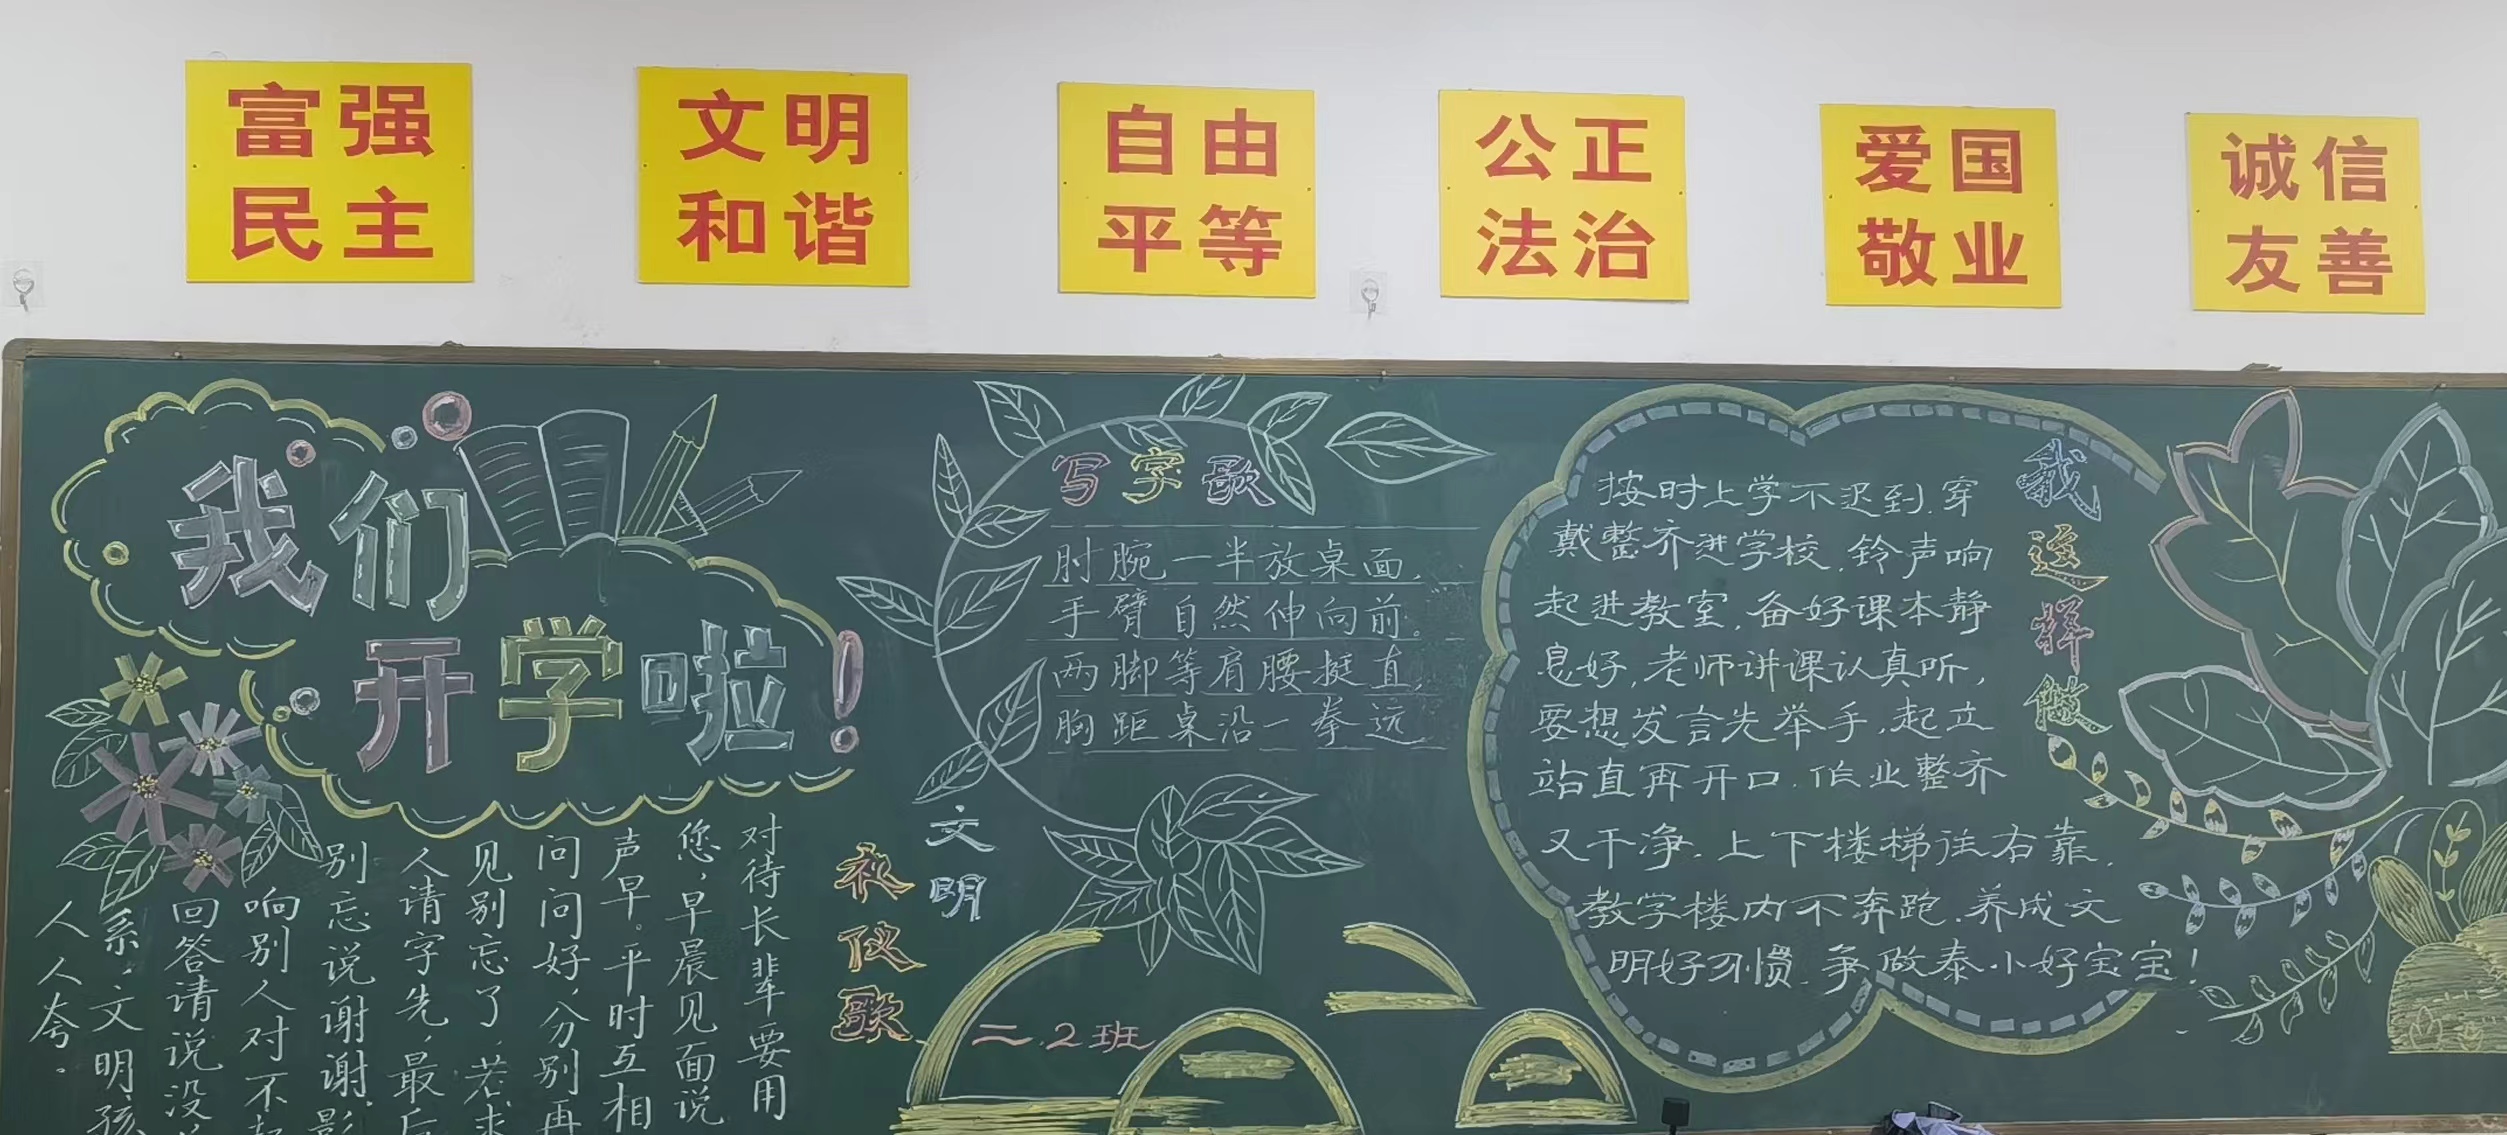 富强
民主
文明
和谐
自由
平等
公正
法治
爱国
敬业
诚信
友善
我们
开学啦！
写字歌
肘腕一半放桌面，
手臂自然伸向前。
两脚等肩腰挺直，
胸距桌沿一拳远。
我这样做
按时上学不迟到，穿
戴整齐进学校，铃声响
起进教室，备好课本静
息好，老师讲课认真听，
要想发言先举手，起立
站直再开口，作业整齐
又干净，上下楼梯往右靠，
教学楼内不奔跑，养成文
明好习惯，争做泰小好宝宝！
文明
礼仪歌
对待长辈要用
您，早晨见面说
声早。平时互相
问问好，分别再
见别忘了，若求
人请字先，最后
别忘说谢谢，影
响别人对不起
回答请说没
系，文明孩
人人夸。
二.2班